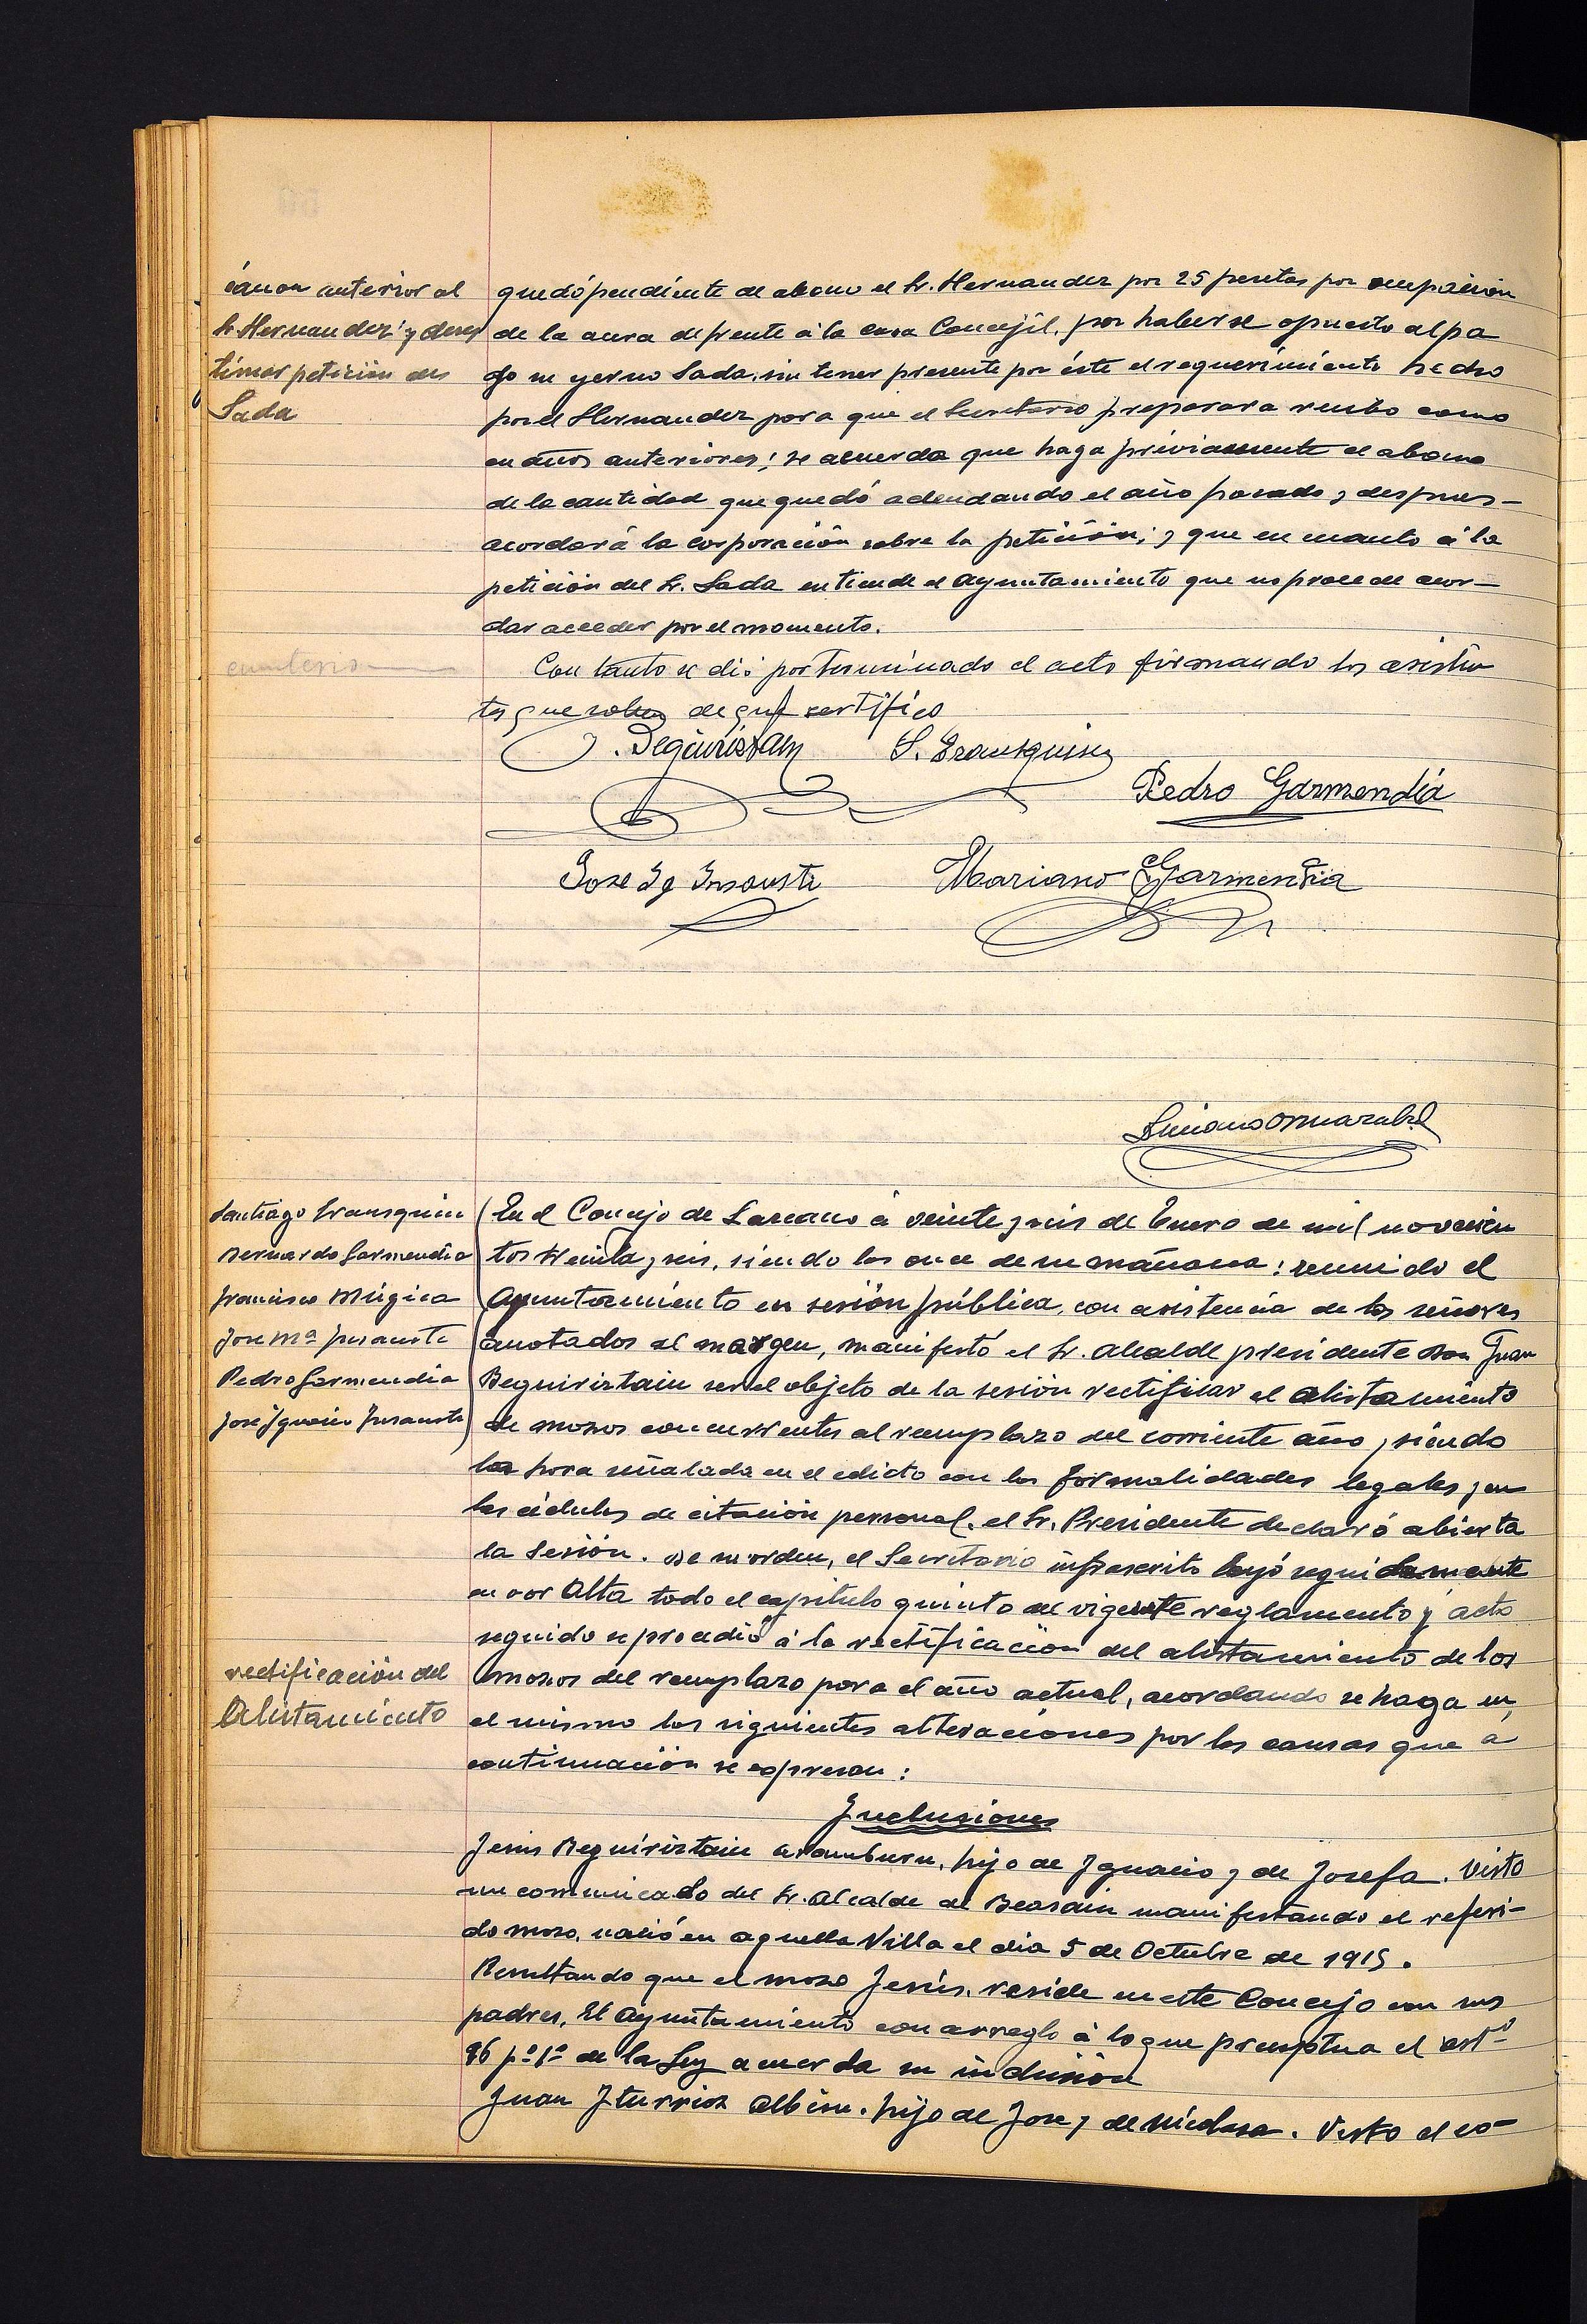 canon anterior al
Sr. Hernandez y deses
timar petición del
Sada
quedó pendiente de abono el Sr. Hernandez por 25 pesetas por ocupación
de la acera de frente á la casa Concejil, por haberse opuesto al pa
go su yerno Sada, sin tener presente por éste el requerimiento hecho
por el Hernandez para que el Secretario preparara recibo como
en años anteriores; se acuerda que haga préviamente el abono
de la cantidad que quedó adeudando el año pasado y despues
acordará la corporación sobre la petición; y que en cuanto á la
petición del Sr. Sada entiende el Ayuntamiento que no procede acor-
dar acceder por el momento.
Con tanto se dió por terminado el acto firmando los asisten
tes que saben de que certifico
J. Beguiristain S. Irausquin
Pedro Garmendia
Jose Ig Insausti Mariano Garmendia
Luciano
Santiago Irausquin
Bernardo Garmendia
Francisco Múgica
Jose Mª Insausti
Pedro Garmendia
José Ignacio Insausti
En el Concejo de Lazcano á veinte y seis de Enero de mil novecien
tos treinta y seis, siendo las once de su mañana: reunido el
Ayuntamiento en sesión pública, con asistencia de los señores
anotados al margen, manifestó el Sr. Alcalde presidente Don Juan
Beguiristain ser el objeto de la sesión rectificar el alistamiento
de mozos concurrentes al reemplazo del corriente año, siendo
la hora señalada en el edicto con las formalidades legales y en
las cédulas de citación personal, el Sr. Presidente declaró abierta
la sesión. De su orden, el Secretario infrascrito leyó seguidamente
en voz alta todo el capítulo quinto del vigente reglamento y acto
seguido se procedió á la rectificación del alistamiento de los
mozos del reemplazo para el año actual, acordando se haga en
el mismo las siguientes alteraciones por las causas que á
continuación se expresan:
rectificación del
Alistamiento
Inclusiones
Jesús Beguiristain Aramburu, hijo de Ignacio y de Josefa. Visto
un comunicado del Sr. Alcalde de Beasain manifestando el referi-
do mozo, nació en aquella Villa el dia 5 de Octubre de 1915.
Resultando que el mozo Jesús, reside en este Concejo con sus
padres, El Ayuntamiento con arreglo á lo que preceptua el artº
96 pº 1º de la Ley acuerda su inclusión
Juan Iturrioz Albisu, hijo de Jose y de Nicolasa. Visto el co-